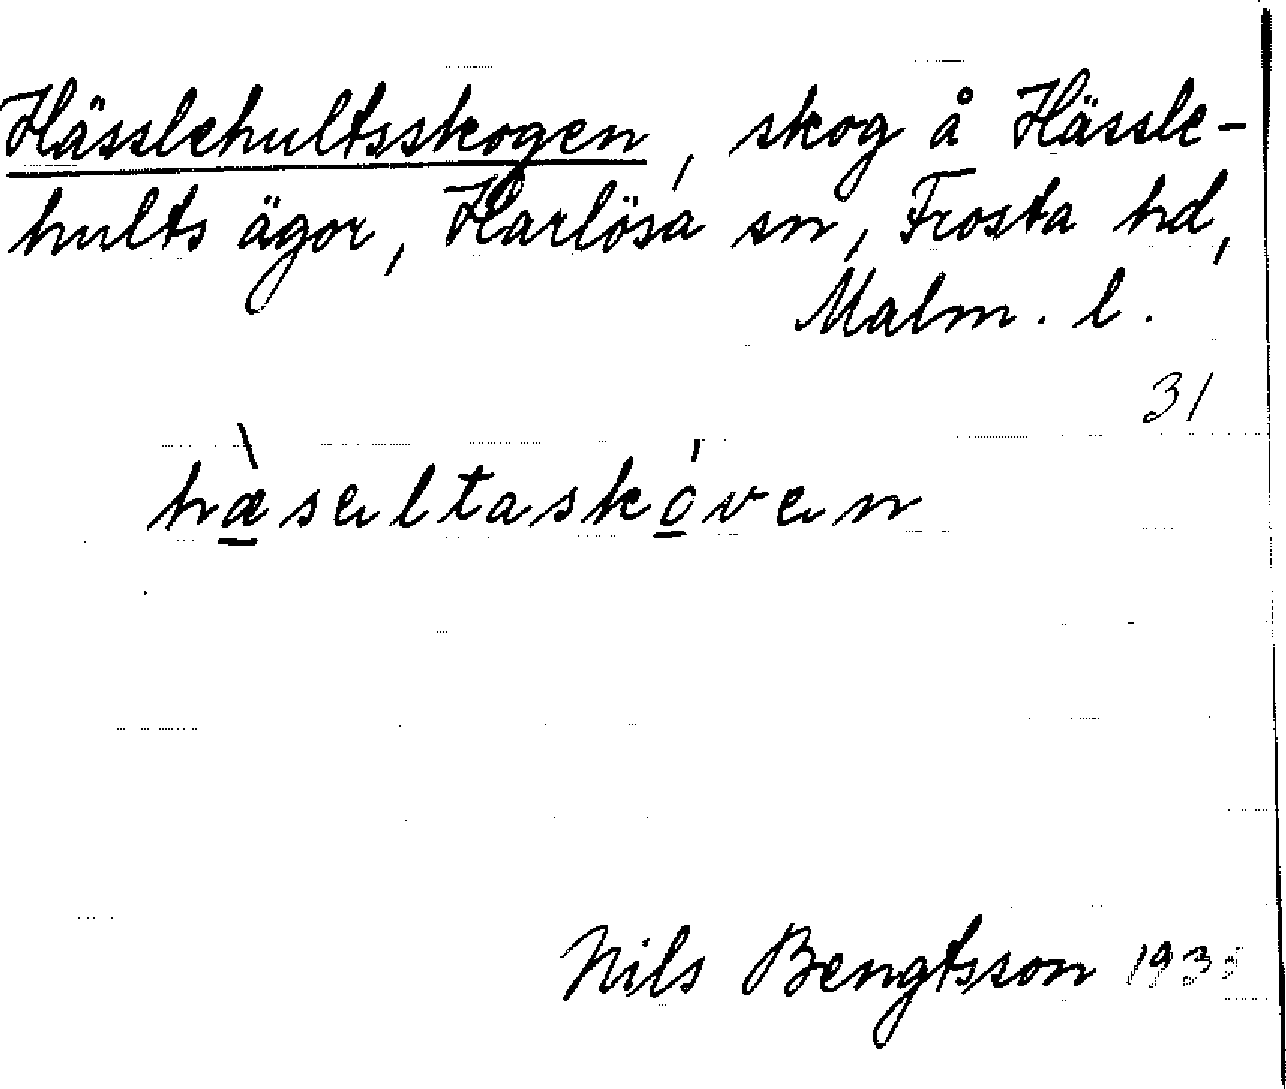 Hässlehultsskogen, skog å Hässle-
hults ägor, Harlösa sn, Frosta hd,
Malm. l.
31
hæ̀seltaskóven
Nils Bengtsson